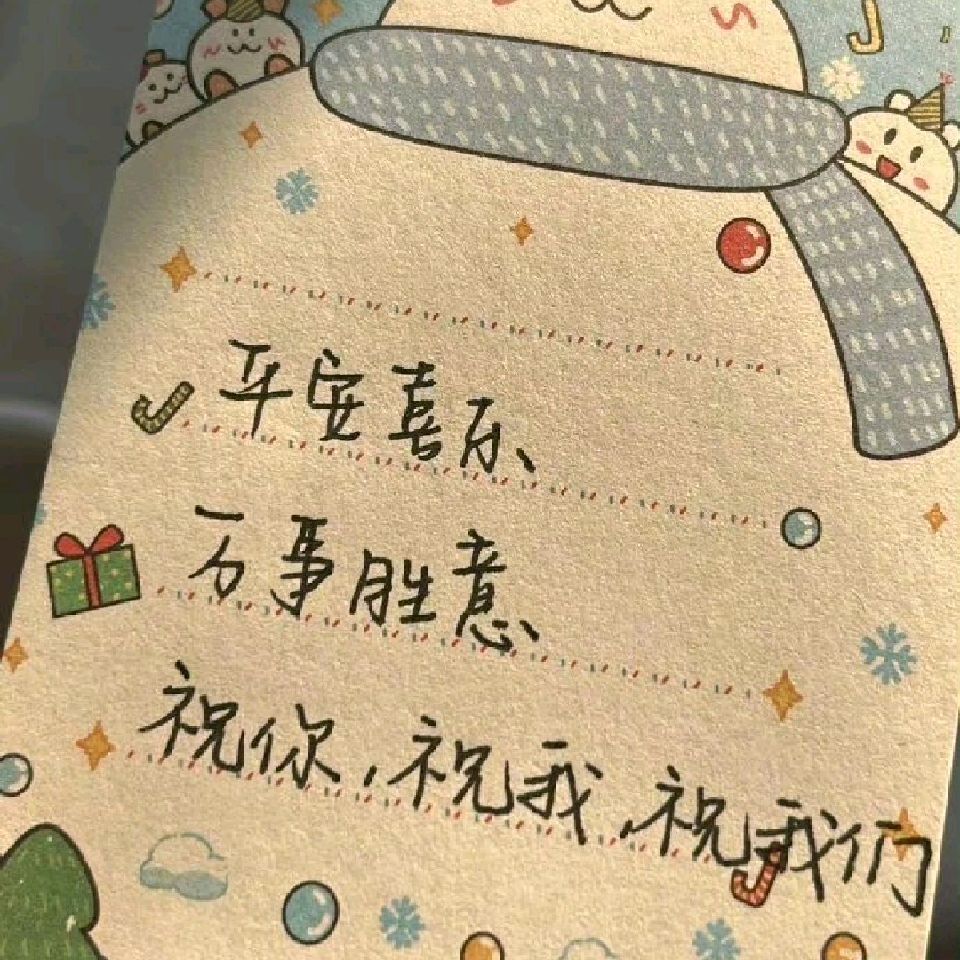 平安喜乐、
万事胜意、
祝你,祝我,祝我们